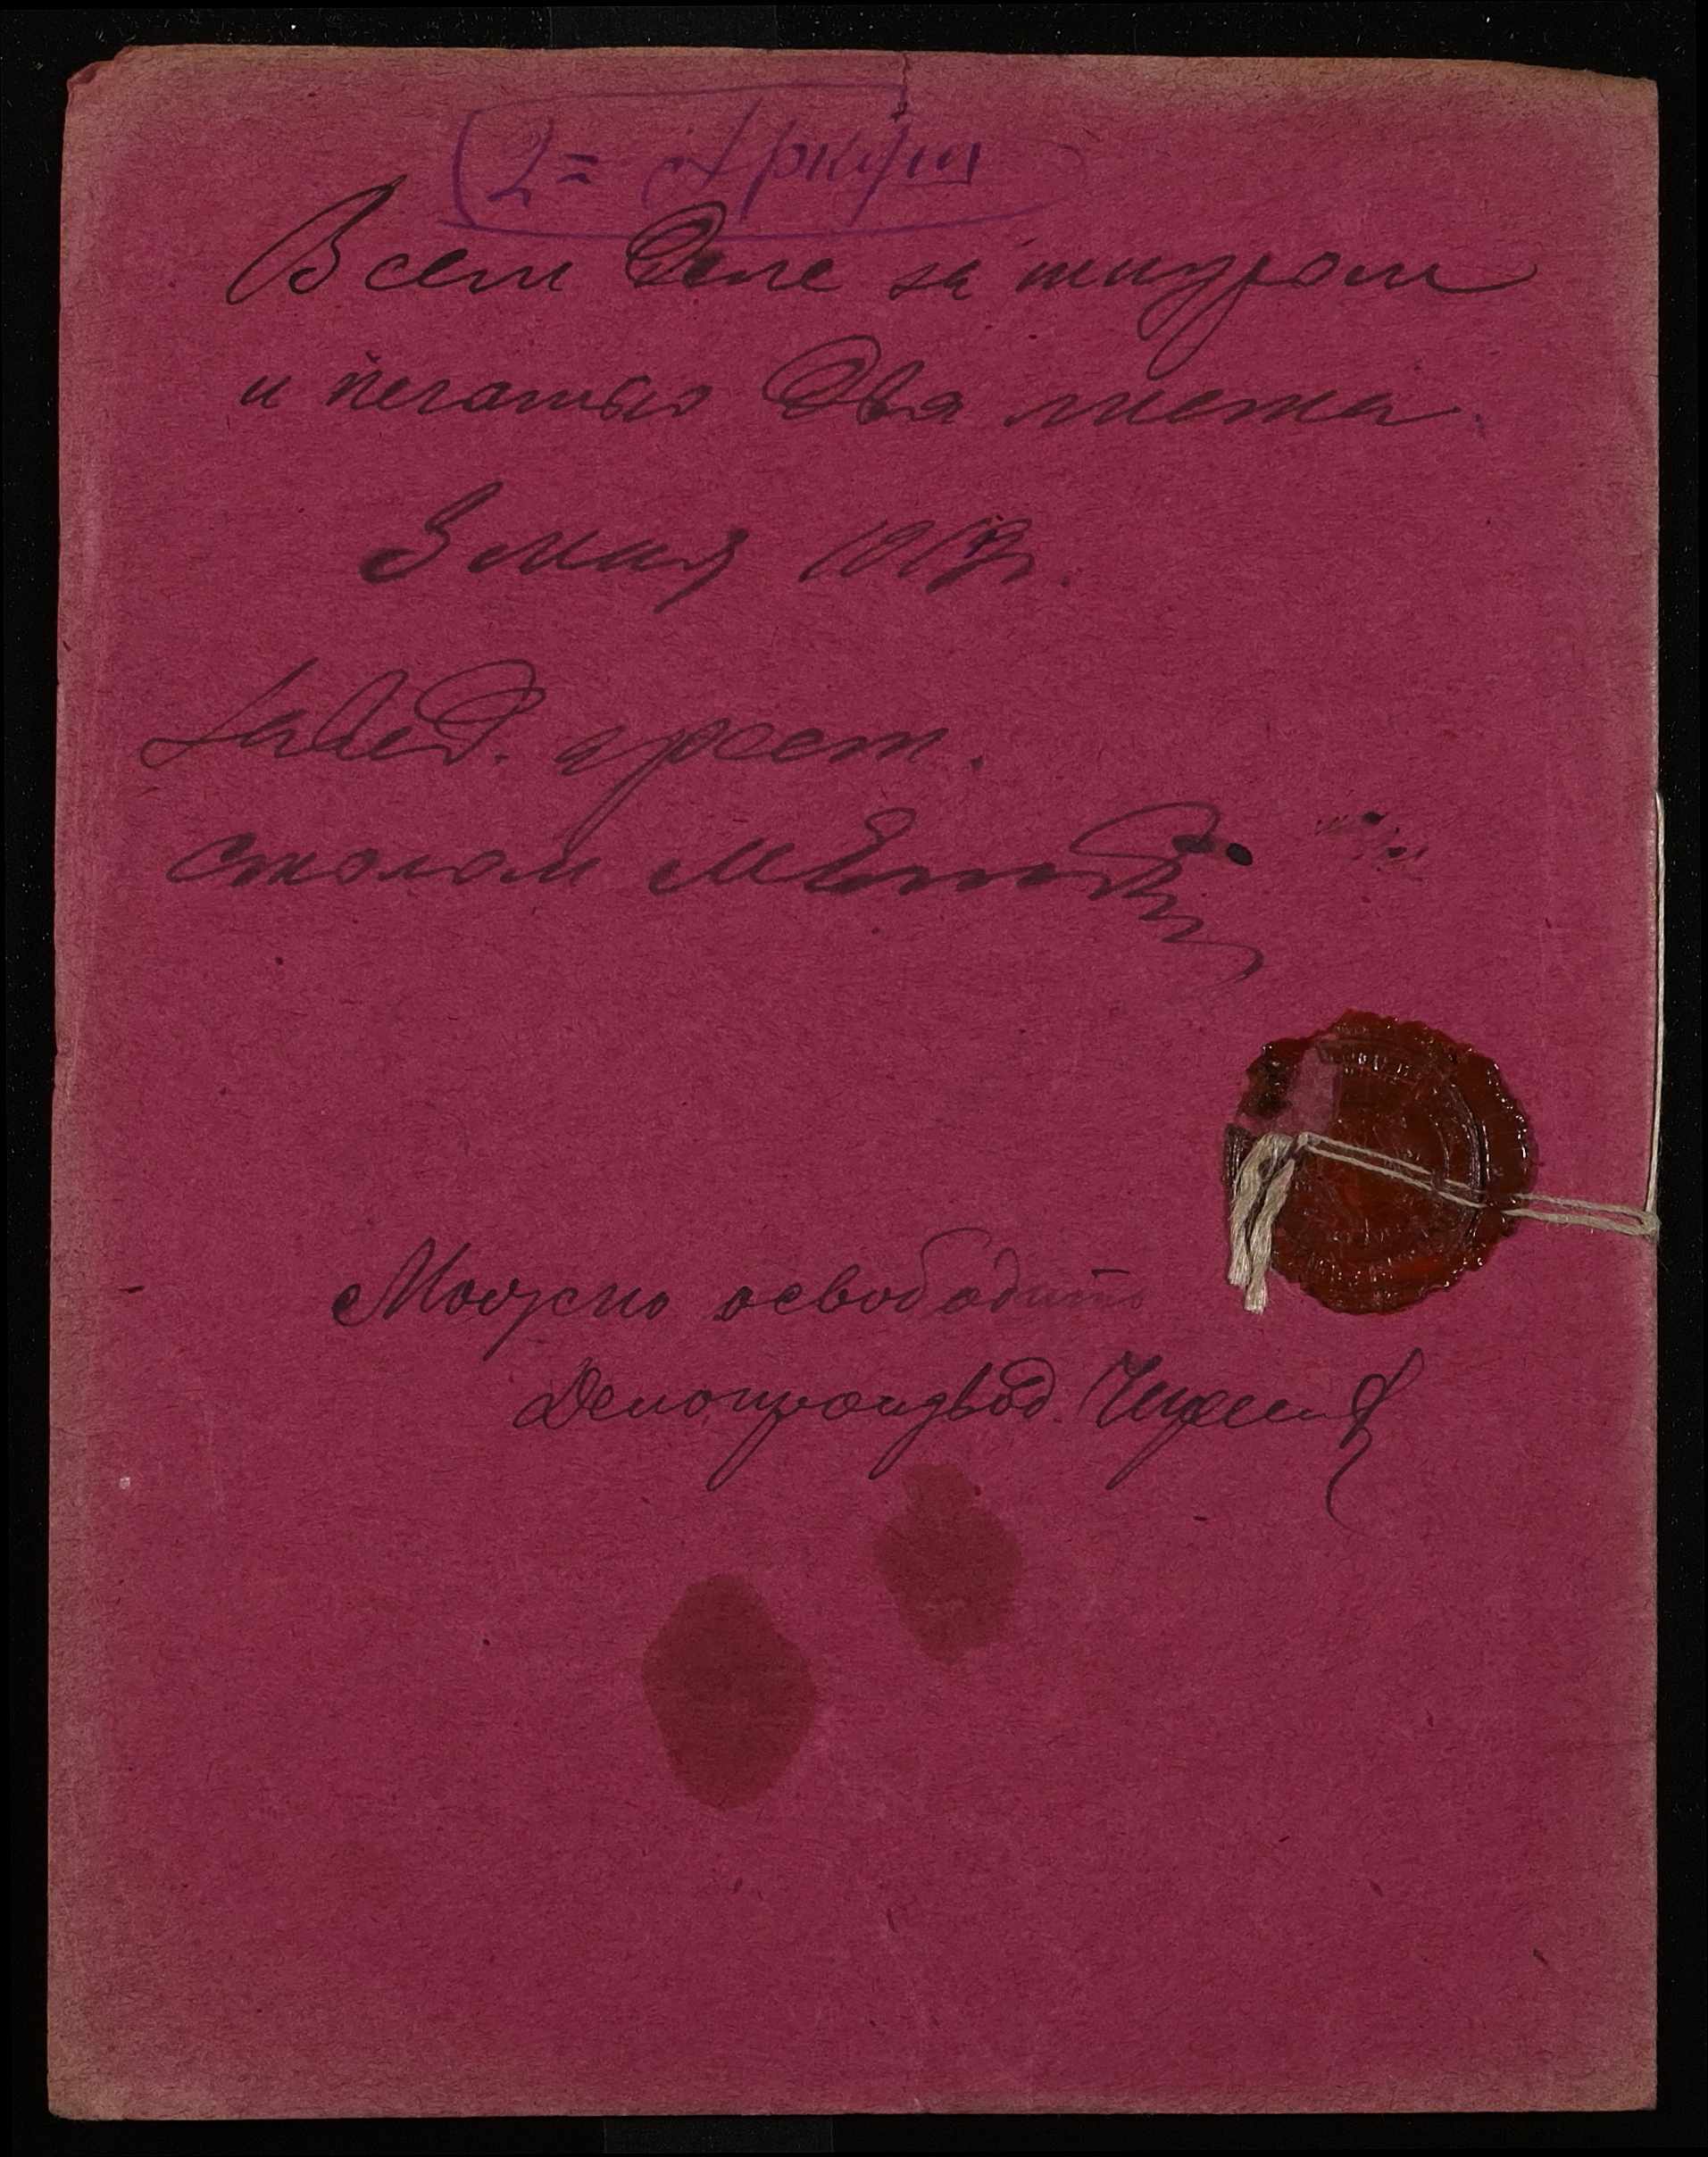 2= Аркуш
В сем деле за шнуром
и печатью два листа.
3 мая 1913 г.
Завед. арест.
столом
Можно освободить
Делопроизвод.